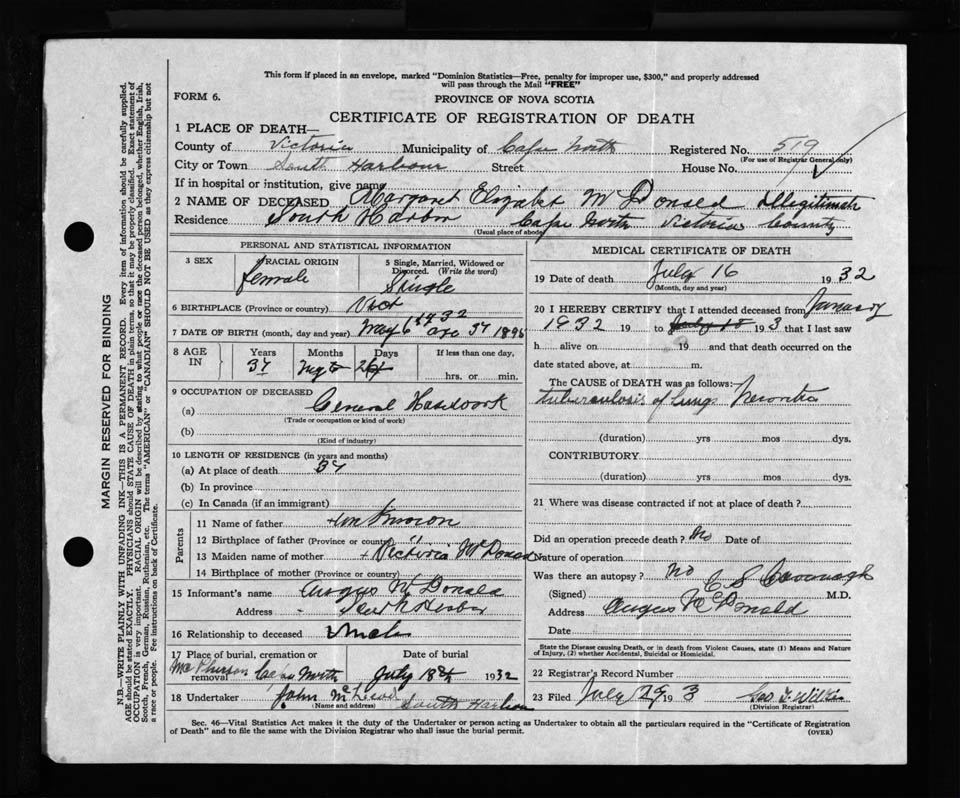 This form if placed in an envelope, marked "Dominion Statistics—Free, penalty for improper use, $300," and properly addressed
will pass through the Mail "FREE"
FORM 6.
PROVINCE OF NOVA SCOTIA
CERTIFICATE OF REGISTRATION OF DEATH
1 PLACE OF DEATH—
County of Victoria Municipality of Cape North Registered No. 519
(For use of Registrar General only)
City or Town South Harbour Street House No.
If in hospital or institution, give name
2 NAME OF DECEASED Margaret Elizabet McDonald Illegitimate
Residence South Harbor Cape North Victoria County
(Usual place of abode)
PERSONAL AND STATISTICAL INFORMATION
3 SEX
RACIAL ORIGIN
5 Single, Married, Widowed or Divorced. (Write the word)
female Single
6 BIRTHPLACE (Province or country) Vict
7 DATE OF BIRTH (month, day and year) May 6 1895
8 AGE IN Years Months Days If less than one day,
37 hrs. or min.
9 OCCUPATION OF DECEASED
(a) General Housework
(Trade or occupation or kind of work)
(b)
(Kind of industry)
10 LENGTH OF RESIDENCE (in years and months)
(a) At place of death 37
(b) In province
(c) In Canada (if an immigrant)
Parents
11 Name of father
12 Birthplace of father (Province or country) "
13 Maiden name of mother Victoria McDonald
14 Birthplace of mother (Province or country)
15 Informant's name Angus McDonald
Address South Harbor
16 Relationship to deceased Uncle
17 Place of burial, cremation or removal Date of burial
McPherson Cape North July 18 1932
18 Undertaker John McLeod South Harbour
(Name and address)
MEDICAL CERTIFICATE OF DEATH
19 Date of death July 16 1932
(Month, day and year)
20 I HEREBY CERTIFY that I attended deceased from January
1932 19 to July 193 that I last saw
h alive on 19 and that death occurred on the
date stated above, at m.
The CAUSE of DEATH was as follows:
tuberculosis of lung
(duration) yrs mos dys.
CONTRIBUTORY
(duration) yrs mos dys.
21 Where was disease contracted if not at place of death?
Did an operation precede death? No Date of
Nature of operation
Was there an autopsy? no
(Signed) C S Cavanagh M.D.
Address Angus McDonald
Date
State the Disease causing Death, or in death from Violent Causes, state (1) Means and Nature
of Injury, (2) whether Accidental, Suicidal or Homicidal.
22 Registrar's Record Number
23 Filed July 29 193 Geo
(Division Registrar)
Sec. 46—Vital Statistics Act makes it the duty of the Undertaker or person acting as Undertaker to obtain all the particulars required in the "Certificate of Registration
of Death" and to file the same with the Division Registrar who shall issue the burial permit.
(OVER)
MARGIN RESERVED FOR BINDING
N.B.—WRITE PLAINLY WITH UNFADING INK—THIS IS A PERMANENT RECORD. Every item of information should be carefully supplied.
AGE should be stated EXACTLY. PHYSICIANS should STATE CAUSE OF DEATH in plain terms, so that it may be properly classified. Exact statement of
OCCUPATION is very important. RACIAL ORIGIN will be described by stating to what people or race the deceased person belonged, whether English, Irish,
Scotch, French, German, Russian, Ruthenian, etc. The terms "AMERICAN" or "CANADIAN" SHOULD NOT BE USED as they express citizenship but not
a race or people. See instructions on back of Certificate.